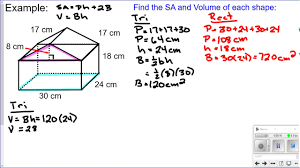 Example:
SA = Ph + 2B
V = Bh
Find the SA and Volume of each shape:
17 cm
17 cm
8 cm
18 cm
24 cm
30 cm
Tri
P = 17+17+30
P = 64 cm
h = 24 cm
B = ½bh
= ½(8)(30)
B = 120 cm²
Rect
P = 30+24+30+24
P = 108 cm
h = 18 cm
B = 30(24) = 720 cm²
Tri
V = Bh = 120(24)
V = 28